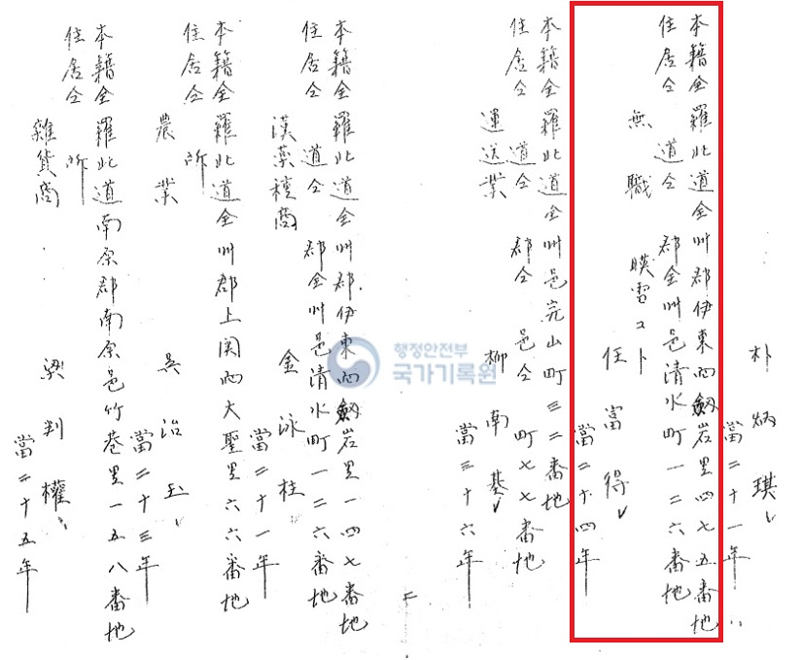 朴炳琪
當二十一年
本籍全羅北道全州郡伊東面劒岩里四七五番地
住居仝 道仝 郡全州邑清水町一二六番地
無職 暎雪コト 任富得
當二十四年
本籍全羅北道全州邑完山町三二番地
住居仝 道仝 郡仝 邑仝 町七七番地
運送業 柳南基
當三十六年
本籍全羅北道全州郡伊東面劒岩里一四七番地
住居仝 道仝 郡全州邑清水町一二六番地
漢薬種商 金泳柱
當二十一年
本籍全羅北道全州郡上関面大聖里六六番地
住居仝 所
農業 吳治玉
當二十三年
本籍全羅北道南原郡南原邑竹巷里一五八番地
住居仝 所
雜貨商 梁判權
當二十五年
행정안전부
국가기록원